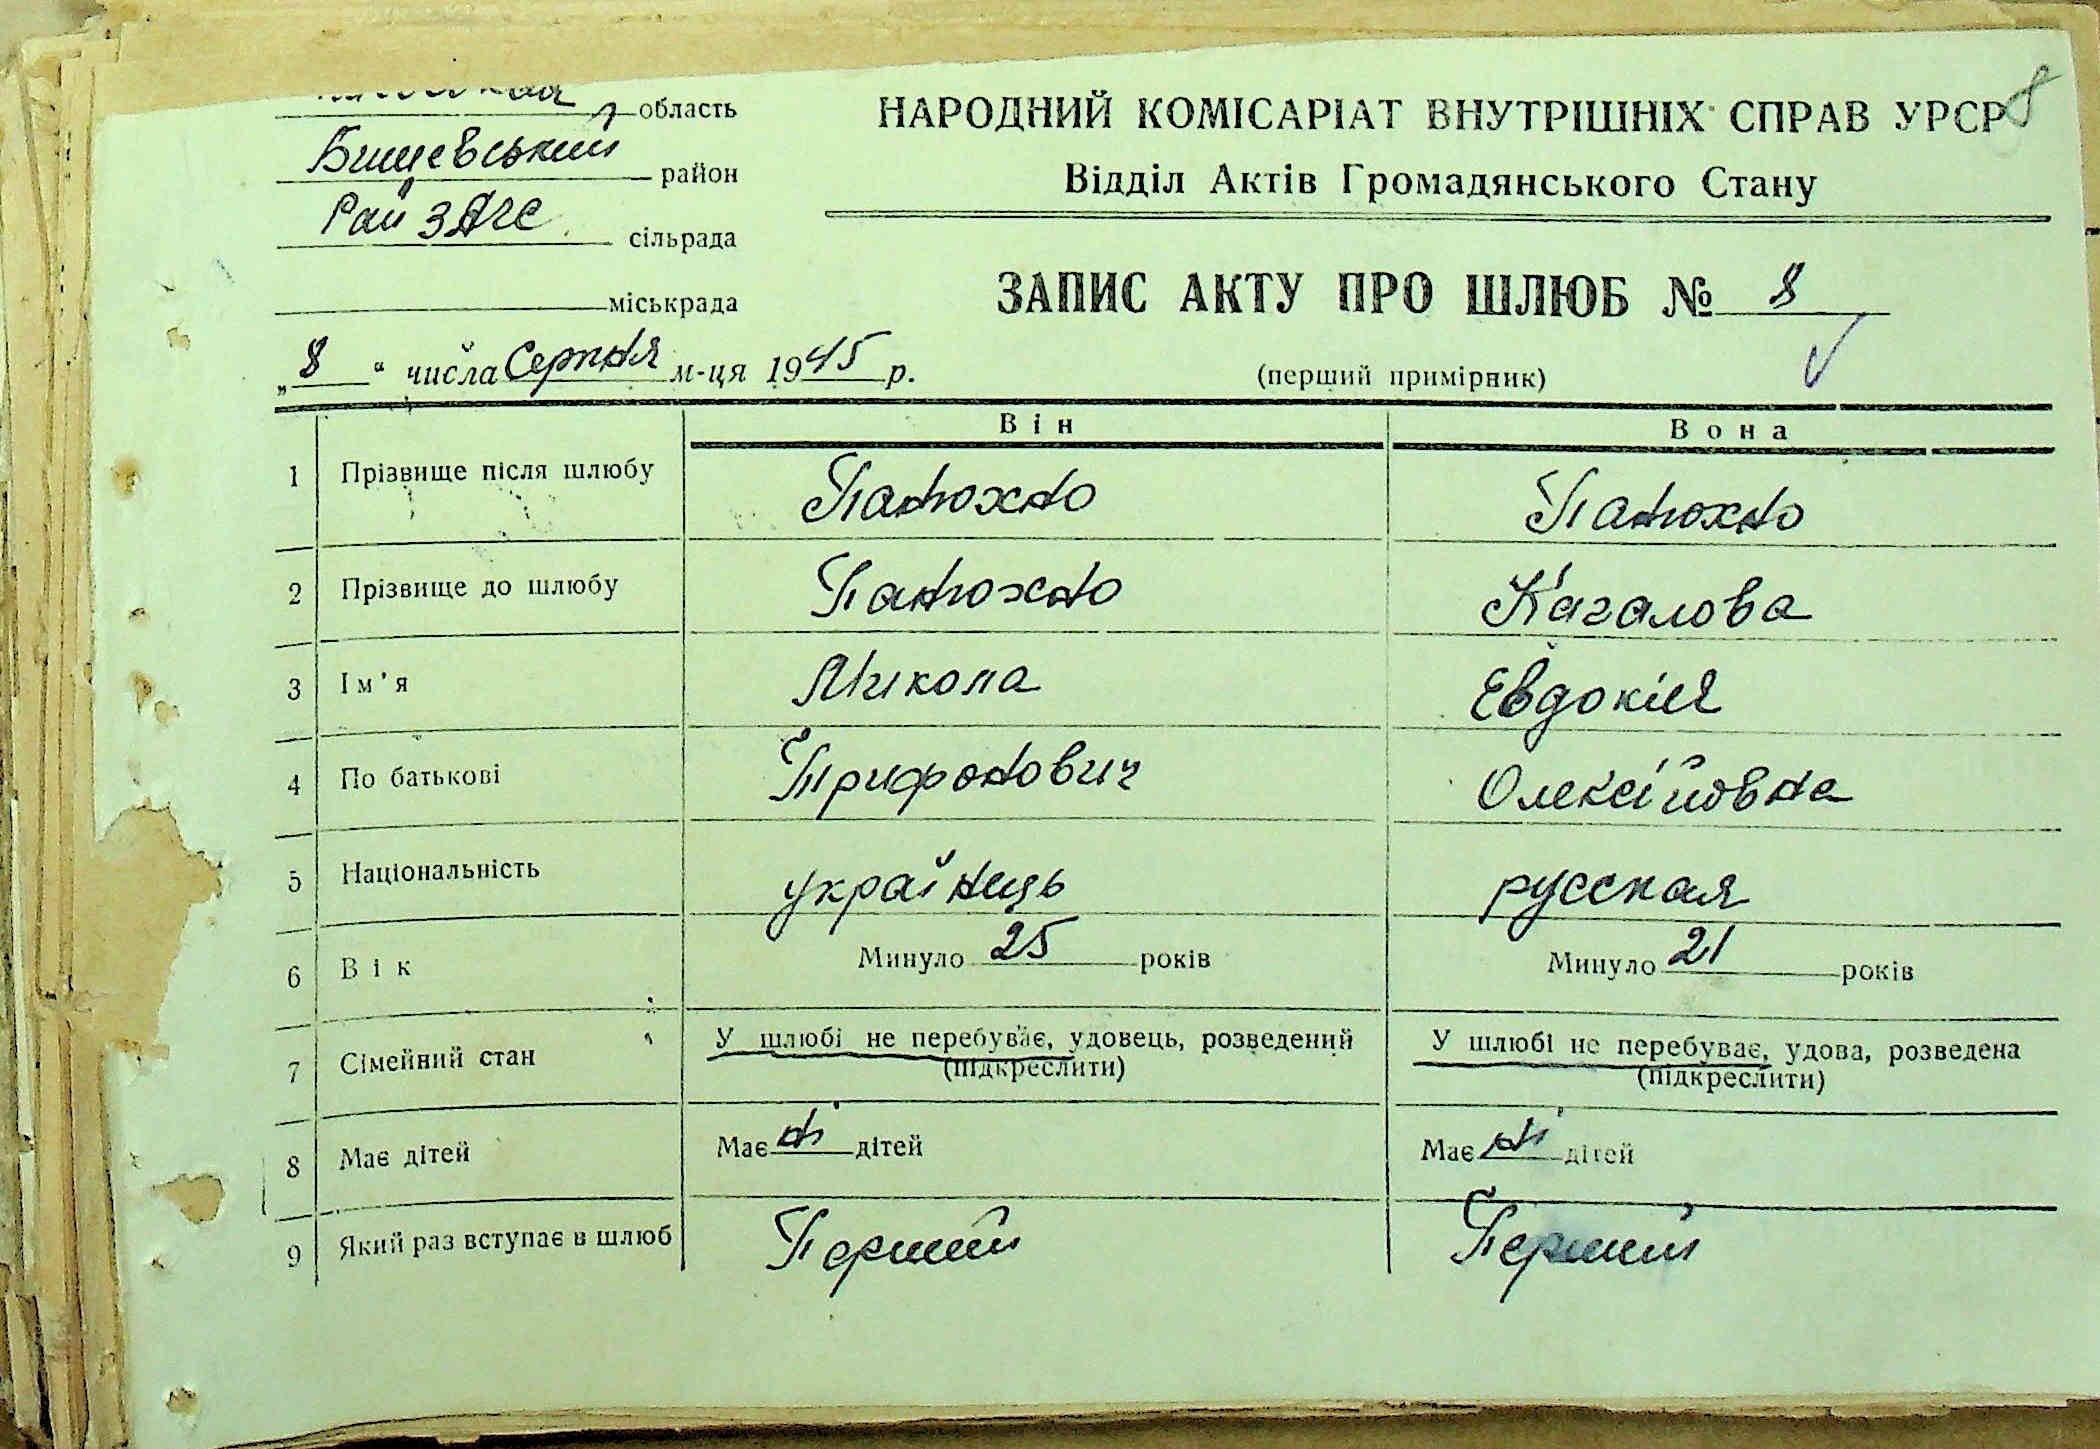 область
НАРОДНИЙ КОМІСАРІАТ ВНУТРІШНІХ СПРАВ УРСР
8
Бишевський район
Відділ Актів Громадянського Стану
Рай ЗАГС сільрада
міськрада
ЗАПИС АКТУ ПРО ШЛЮБ № 8
„8“ числа Серпня м-ця 1945 р.
(перший примірник)
Він Вона
1 Прізвище після шлюбу Панюхно Панюхно
2 Прізвище до шлюбу Панюхно Кагалова
3 Ім'я Микола Євдокія
4 По батькові Трифонович Олексійовна
5 Національність українець русская
6 Вік Минуло 25 років Минуло 21 років
7 Сімейний стан У шлюбі не перебуває, удовець, розведений У шлюбі не перебуває, удова, розведена
(підкреслити) (підкреслити)
8 Має дітей Має ні дітей Має ні дітей
9 Який раз вступає в шлюб Перший Перший